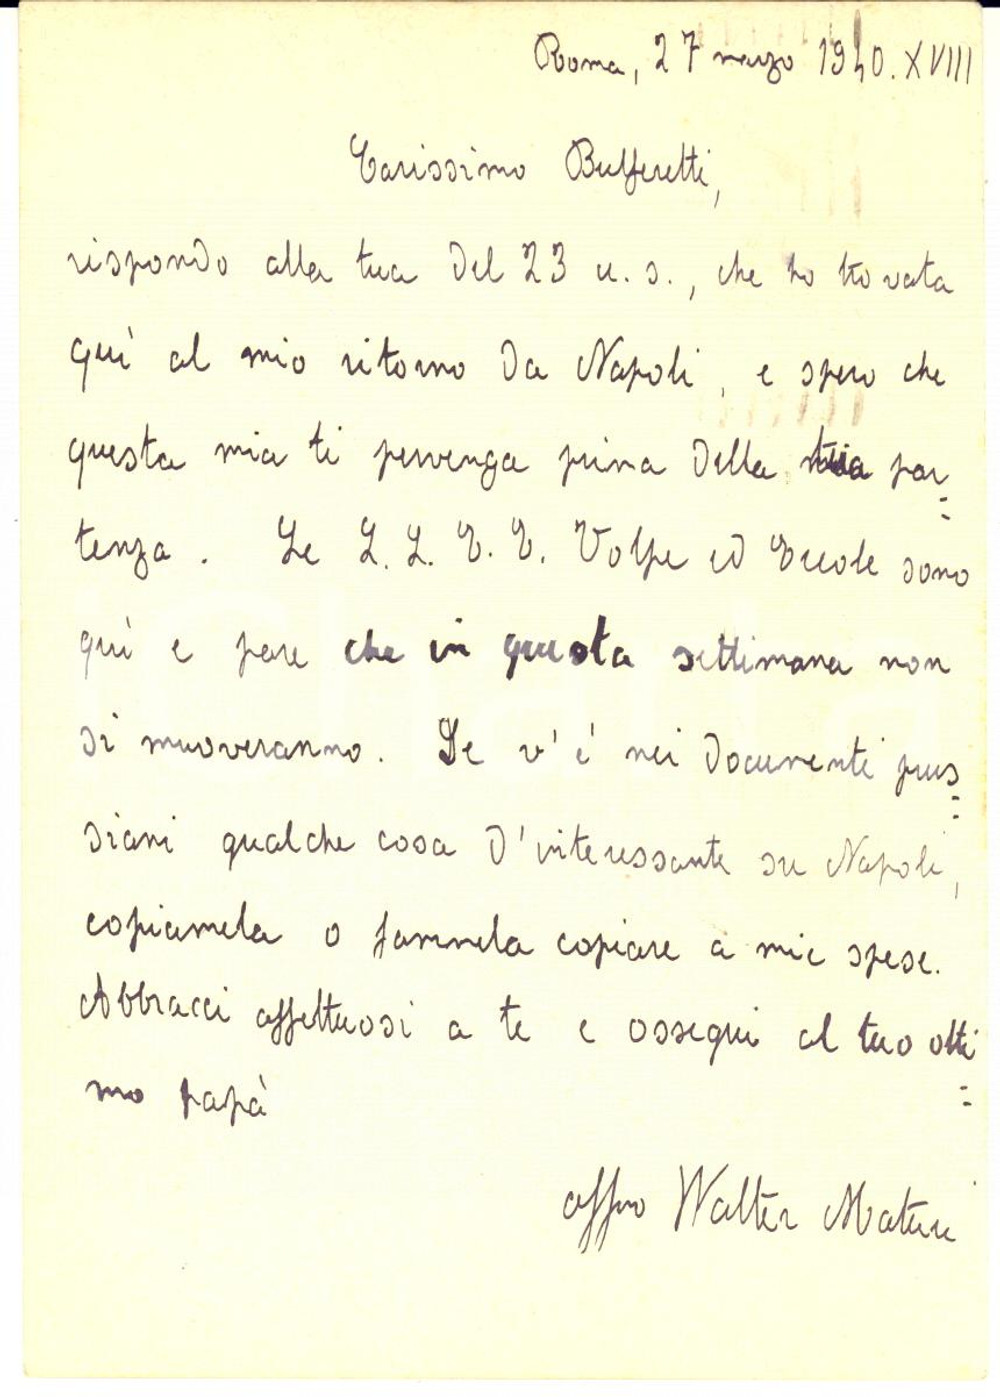 Roma, 27 marzo 1940. XVIII
Carissimo Bulferetti,
rispondo alla tua del 23 u. s., che ho trovata
quì al mio ritorno da Napoli, e spero che
questa mia ti pervenga prima della tua par=
tenza. Le L. L. E. E. Volpe ed Ercole sono
quì e pare che in questa settimana non
si muoveranno. Se v'è nei documenti prus=
siani qualche cosa d'interessante su Napoli,
copiamela o fammela copiare a mie spese.
Abbracci affettuosi a te e ossequi al tuo otti=
mo papà
affmo Walter Maturi